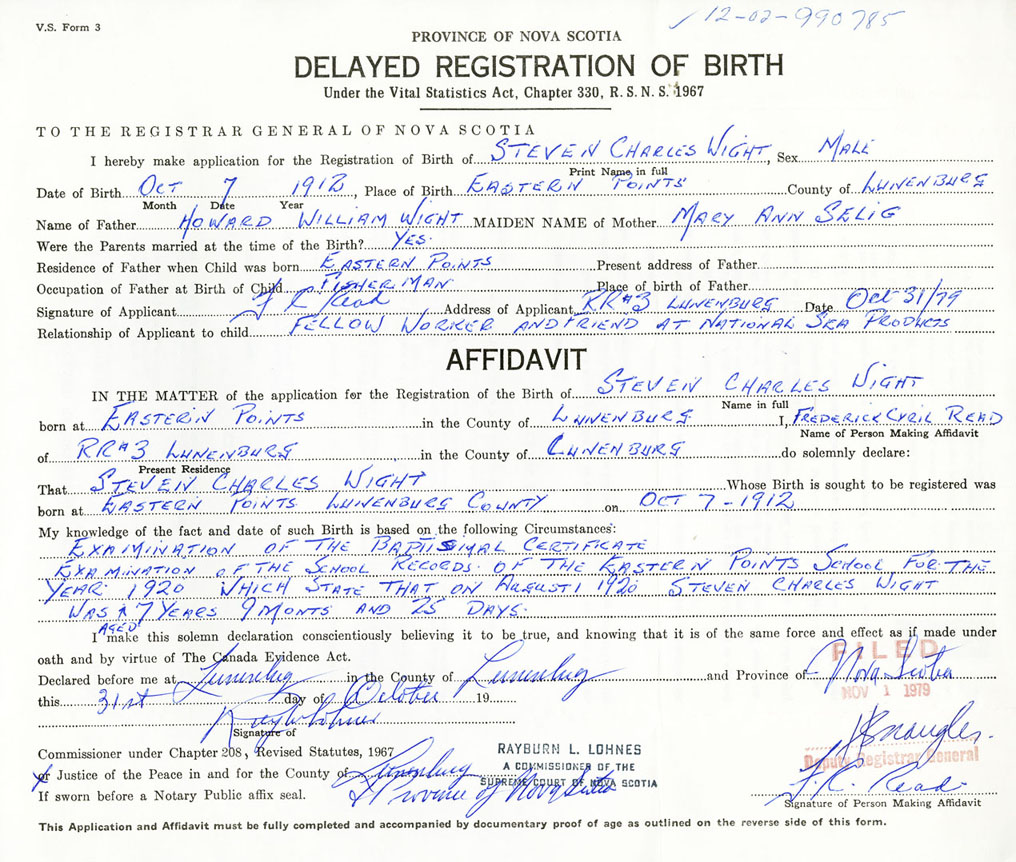 V.S. Form 3
12-02-990785
PROVINCE OF NOVA SCOTIA
DELAYED REGISTRATION OF BIRTH
Under the Vital Statistics Act, Chapter 330, R.S.N.S. 1967
TO THE REGISTRAR GENERAL OF NOVA SCOTIA
I hereby make application for the Registration of Birth of STEVEN CHARLES WIGHT, Sex MALE
Print Name in full
Date of Birth OCT 7 1912, Place of Birth EASTERN POINTS County of LUNENBURG
Month Date Year
Name of Father HOWARD WILLIAM WIGHT MAIDEN NAME of Mother MARY ANN SELIG
Were the Parents married at the time of the Birth? YES.
Residence of Father when Child was born EASTERN POINTS Present address of Father
Occupation of Father at Birth of Child FISHERMAN Place of birth of Father
Signature of Applicant F C Read Address of Applicant RR#3 LUNENBURG Date Oct 31/79
Relationship of Applicant to child FELLOW WORKER AND FRIEND AT NATIONAL SEA PRODUCTS
AFFIDAVIT
IN THE MATTER of the application for the Registration of the Birth of STEVEN CHARLES WIGHT
Name in full
born at EASTERN POINTS in the County of LUNENBURG I, FREDERICK CYRIL READ
Name of Person Making Affidavit
of RR#3 LUNENBURG in the County of LUNENBURG do solemnly declare:
Present Residence
That STEVEN CHARLES WIGHT Whose Birth is sought to be registered was
born at EASTERN POINTS LUNENBURG COUNTY on OCT 7-1912
My knowledge of the fact and date of such Birth is based on the following Circumstances:
EXAMINATION OF THE BAPTISIMAL CERTIFICATE
EXAMINATION OF THE SCHOOL RECORDS OF THE EASTERN POINTS SCHOOL FOR THE
YEAR 1920 WHICH STATE THAT ON AUGUST 1 1920 STEVEN CHARLES WIGHT
WAS AGED 7 YEARS 9 MONTS AND 25 DAYS.
I make this solemn declaration conscientiously believing it to be true, and knowing that it is of the same force and effect as if made under
oath and by virtue of The Canada Evidence Act.
FILED
Declared before me at Lunenburg in the County of Lunenburg and Province of Nova Scotia
this 31st day of October 19
NOV 1 1979
Signature of
Commissioner under Chapter 208, Revised Statutes, 1967
RAYBURN L. LOHNES
A COMMISSIONER OF THE
SUPREME COURT OF NOVA SCOTIA
Deputy Registrar General
or Justice of the Peace in and for the County of Lunenburg
& Province of Nova Scotia
F. C. Read
If sworn before a Notary Public affix seal.
Signature of Person Making Affidavit
This Application and Affidavit must be fully completed and accompanied by documentary proof of age as outlined on the reverse side of this form.